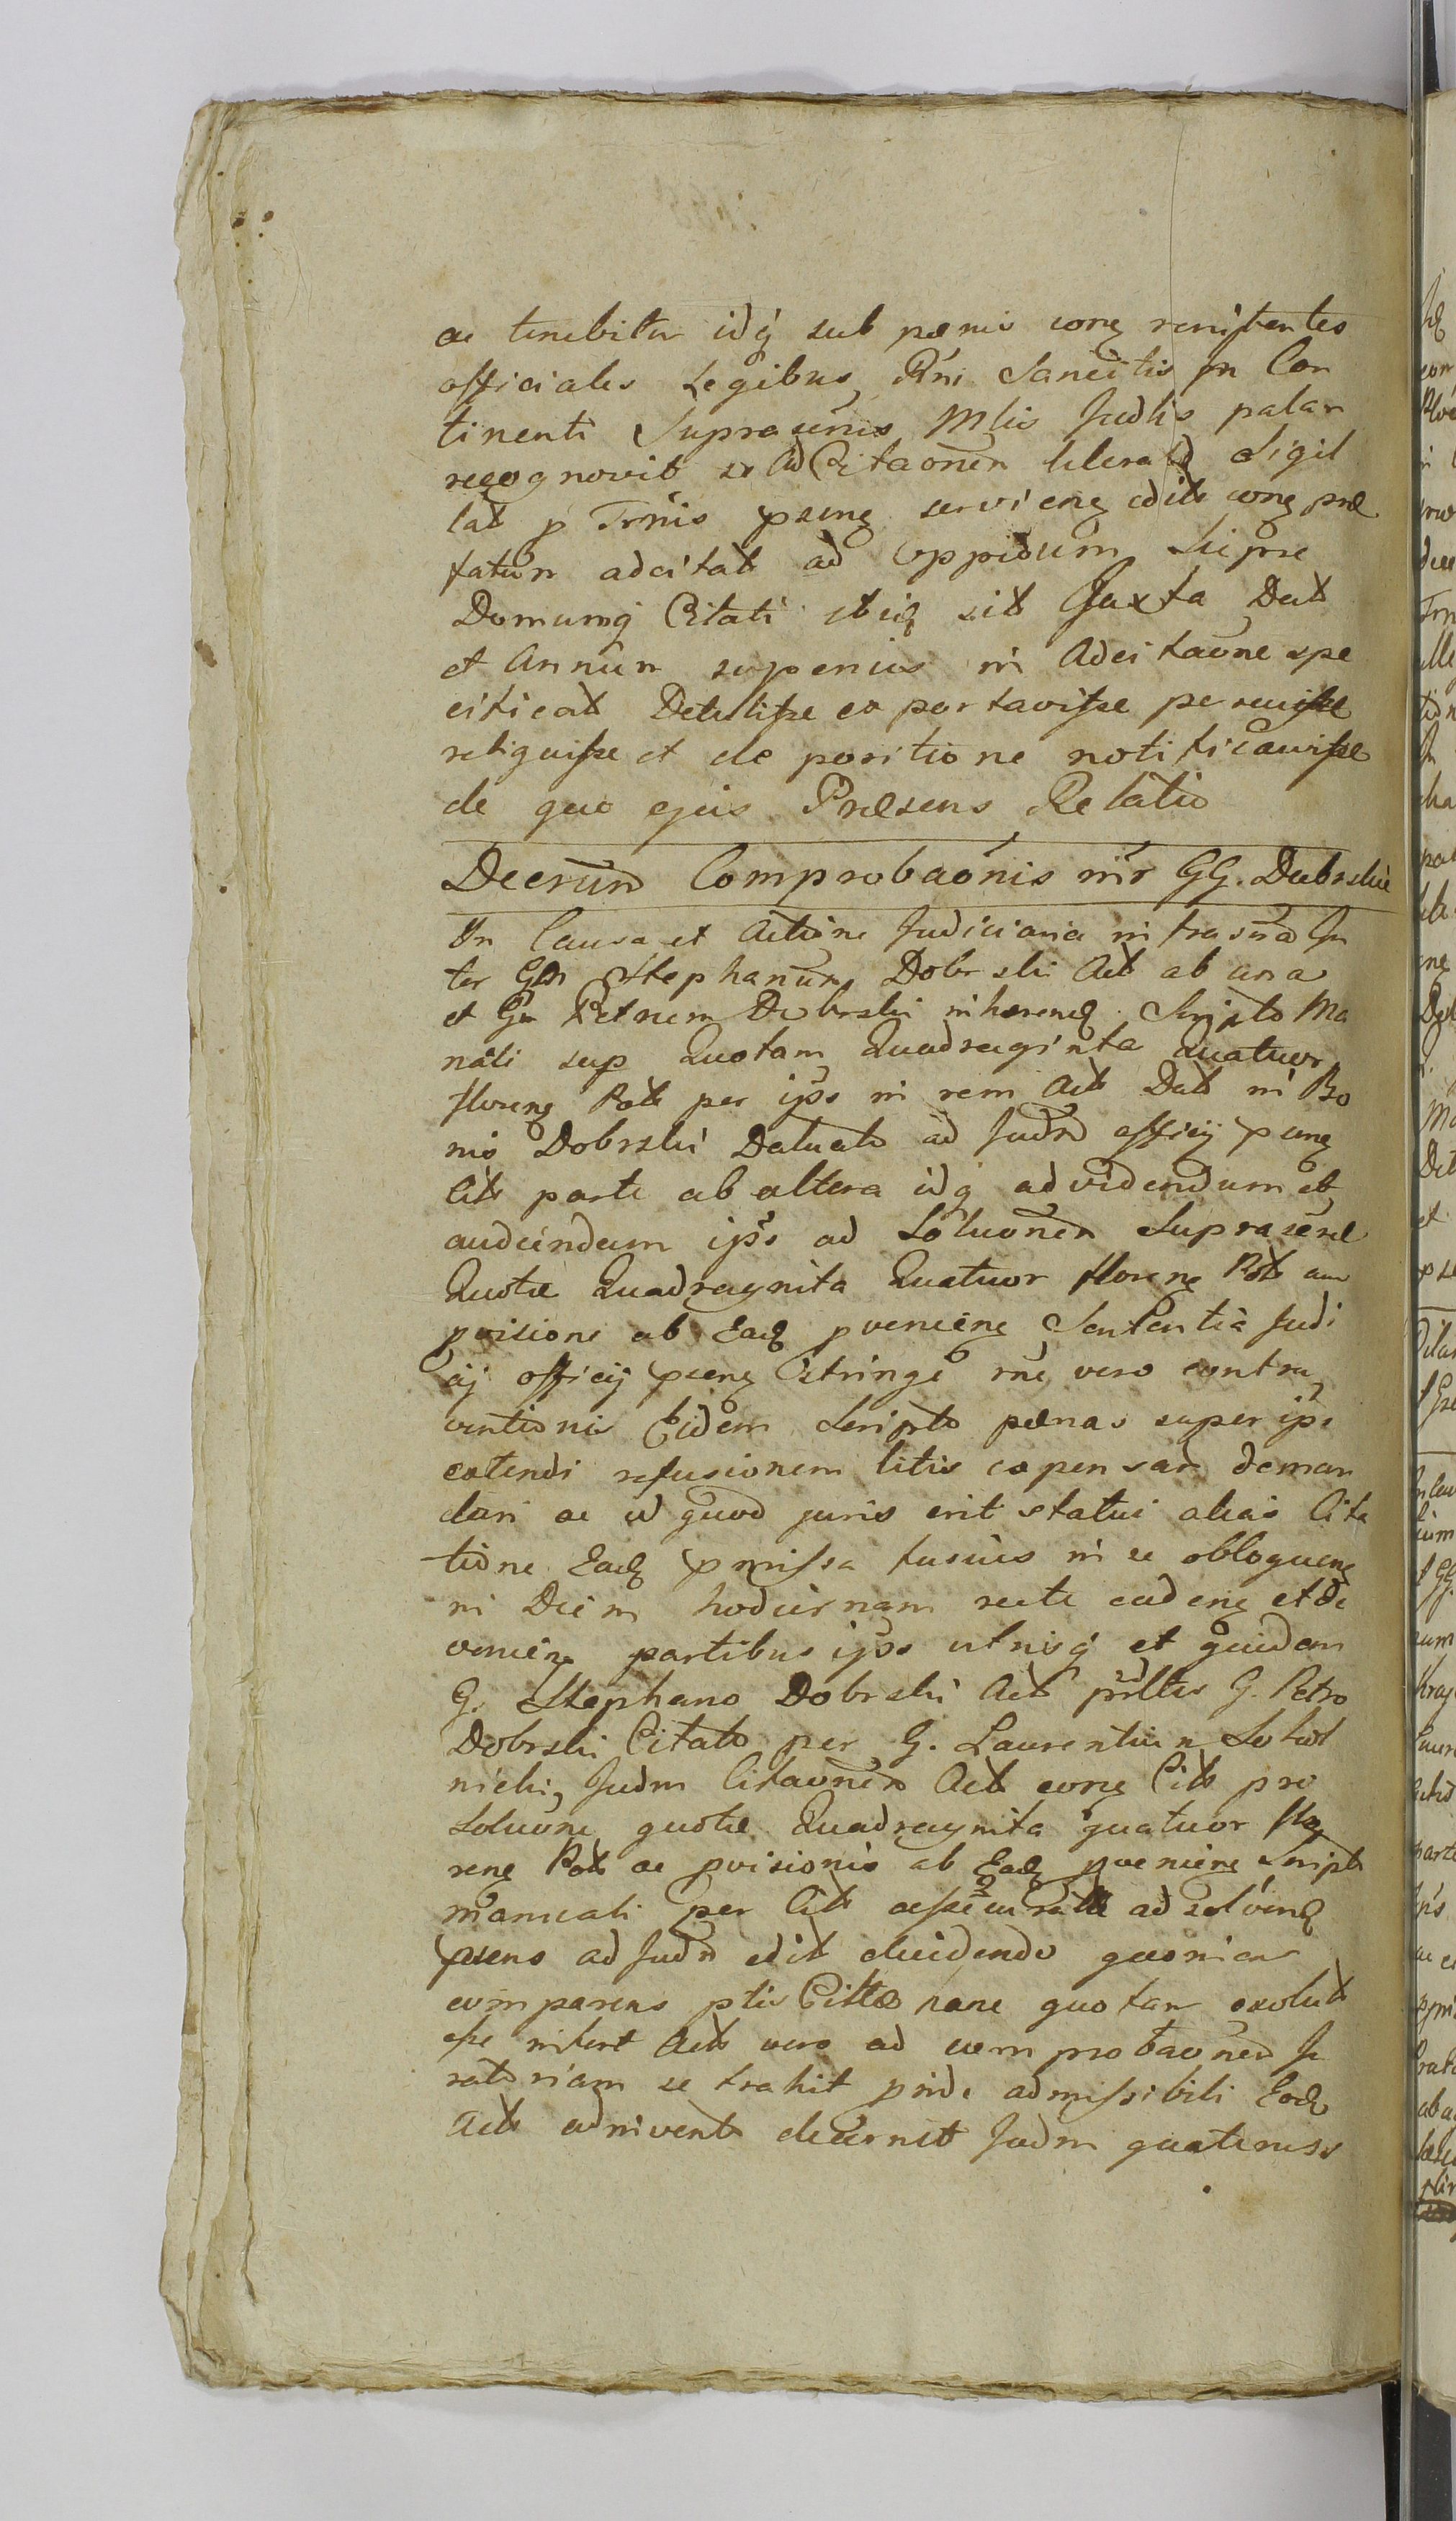 ac tenebitur idq sub pœnis cong renitentes
officiales Legibus Rni Sancitis In Con
tinenti Suprascrius Mlis Judlis palam
recognovit se AdCitaonem literal Sigil
lat p Trnis psens serviens edit cong præ
fatum adcitat ad Oppidum Lipse
Domumq Citati ibiq sit Juxta Dat
et Annum superius in Adcitaone spe
cificat Detulisse exportavisse
reliquisse et de positione notificavisse
de quo ejus Præsens Relatio
Decrum Comprobaonis inr GG. Dobrskie
In Causa et Actione Judiciaria infrascra In
ter Gm Stephanum Dobrski Act ab una
et Gm Petrum Dobrski inhærend Scripto Ma
nali sup Quotam Quadraginta Quatuor
floreng Pol per ips in rem Act Dat in Bo
nis Dobrski Datuato ad Judm officij pseng
Cit parte ab altera idq ad videndum et
audiendum ips ad Soluonem Suprascræ
Quotæ Quadraginta Quatuor floreng Pol am
pvisione ab Eadg pveniens Sententia Judi
cij officij pseng Astringi rne vero contra
ventionis Eidem Scripto pœnas super ips
extendi refusionem litis expensar deman
dari ac id quod juris erit statui alias Cita
tione Eadg pmissa fusius in se obloquens
in Diem hodiernam recte cadens et de
veniens partibus ips utrisq et quidem
G. Stephano Dobrski Act prsltr G. Petro
Dobrski Citato per G. Laurentium Sokol
nicki, Judm Citaonem Act cong Cit pro
Soluone quotæ Quadraginta quatuor flo
reng Pol ac pvisionis ab Eadg pveniens Script
manuali per Cit assecuratæ ad solvend
psens ad Judm edit elucidendo quoniam
comparens ptis Cittæ hanc quotam exolut
esse infert Act vero ad comprobaonem Ju
ratoriam se trahit pinde admissibili Eadg
Act adnivent decernit Judm quatenus